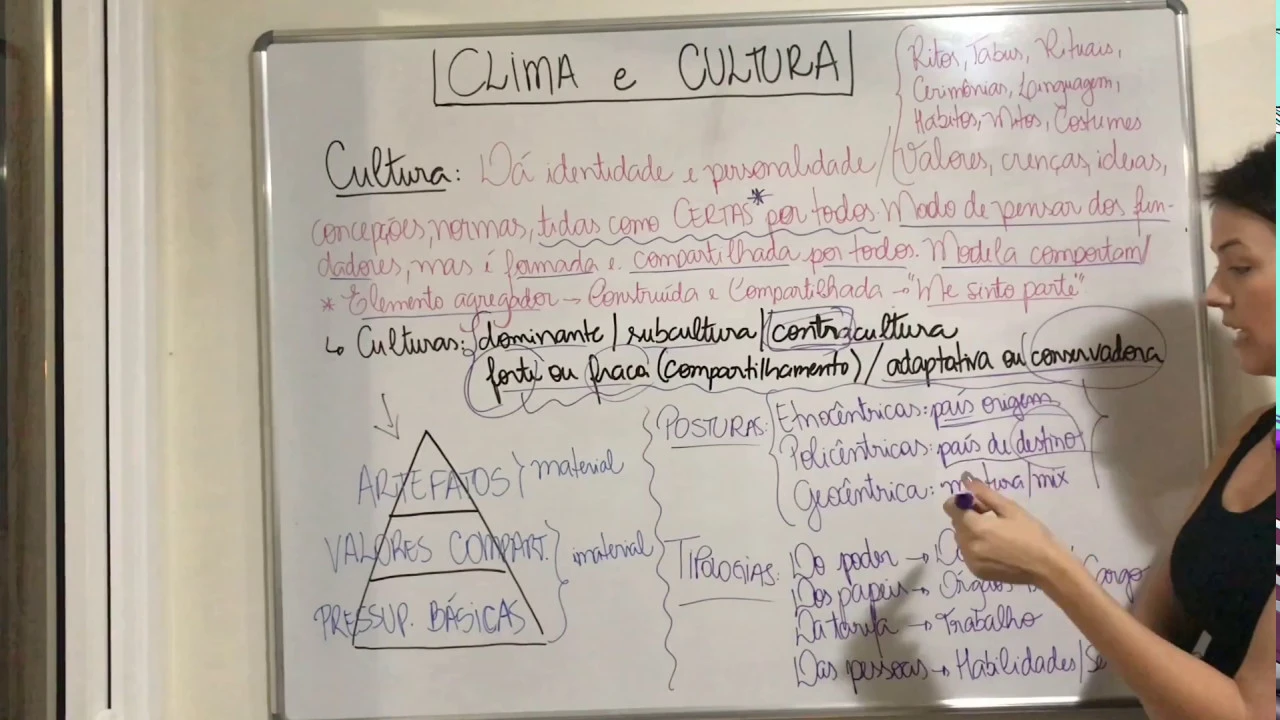 CLIMA e CULTURA
Ritos, Tabus, Rituais,
Cerimônias, Linguagem,
Hábitos, Mitos, Costumes
Cultura: Dá identidade e personalidade / Valores, crenças, ideias,
concepções, normas, tidas como CERTAS* por todos. Modo de pensar dos fun-
dadores, mas é formada e compartilhada por todos. Modela comportam/
* Elemento agregador → Construída e Compartilhada → "Me sinto parte"
↳ Culturas: dominante / subcultura / contracultura
forte ou fraca (compartilhamento) / adaptativa ou conservadora
ARTEFATOS } material
VALORES COMPART.
PRESSUP. BÁSICAS
} imaterial
POSTURAS: Etnocêntricas: país origem
Policêntricas: país de destino
Geocêntrica: mistura/mix
TIPOLOGIAS: Do poder →
Dos papéis → Cargo
Da tarefa → Trabalho
Das pessoas → Habilidades/